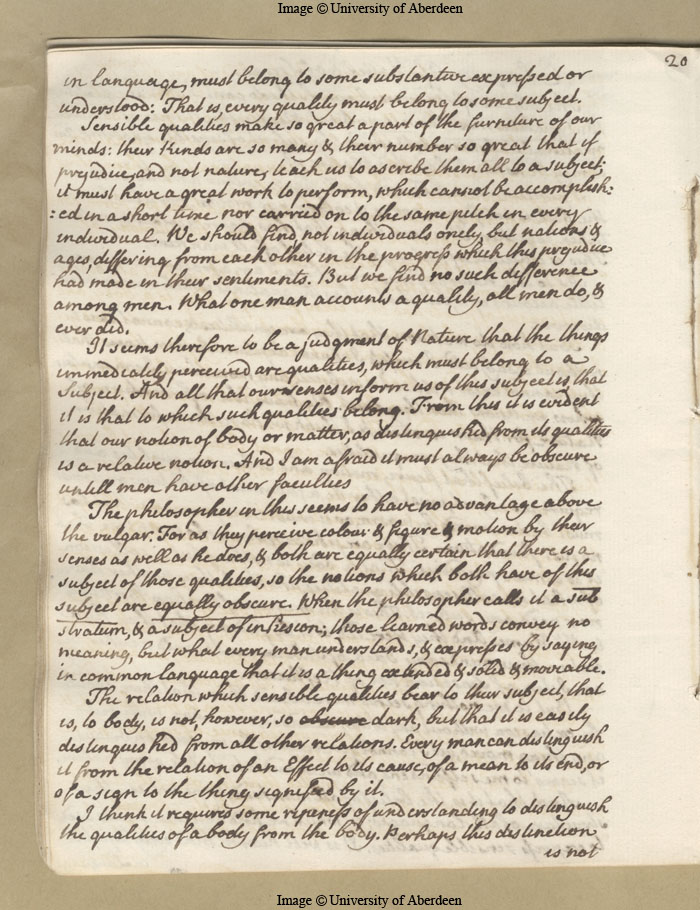 Image © University of Aberdeen
20
in language, must belong to some substantive expressed or
understood: That is, every quality must belong to some subject.
Sensible qualities make so great a part of the furniture of our
minds: their Kinds are so many & their number so great that if
prejudice, and not nature, teach us to ascribe them all to a subject:
it must have a great work to perform, which cannot be accomplish:
:ed in a short time nor carried on to the same pitch in every
individual. We should find, not individuals onely, but nations &
ages, differing from each other in the progress which this prejudice
had made in their sentiments. But we find no such difference
among men. What one man accounts a quality, all men do, &
ever did.
It seems therefore to be a judgment of Nature that the things
immediately perceived are qualities, which must belong to a
Subject. And all that our senses inform us of this subject is, that
it is that to which such qualities belong. From this it is evident
that our notion of body or matter, as distinguished from its qualities
is a relative notion. And I am afraid it must always be obscure
untill men have other faculties
The philosopher in this seems to have no advantage above
the vulgar. For as they perceive colour & figure & motion by their
senses as well as he does, & both are equally certain that there is a
subject of those qualities, so the notions which both have of this
subject are equally obscure. When the philosopher calls it a sub
stratum, & a subject of inhesion, those learned words convey no
meaning, but what every man understands, & expresses by saying
in common language that it is a thing extended & solid & moveable.
The relation which sensible qualities bear to their subject, that
is, to body, is not, however, so obscure dark, but that it is easily
distinguished from all other relations. Every man can distinguish
it from the relation of an Effect to its cause, of a mean to its end, or
of a sign to the thing signified by it.
I think it requires some ripeness of understanding to distinguish
the qualities of a body from the body. Perhaps this distinction
is not
Image © University of Aberdeen